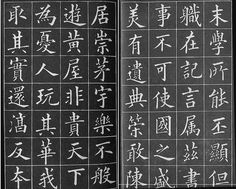 末學所能丕顯但
職在記言属茲書
事不可使國之盛
美有遺典策敢陳
居崇茅宇樂不般
遊黃屋非貴天下
為憂人玩其華我
取其實還淳反本